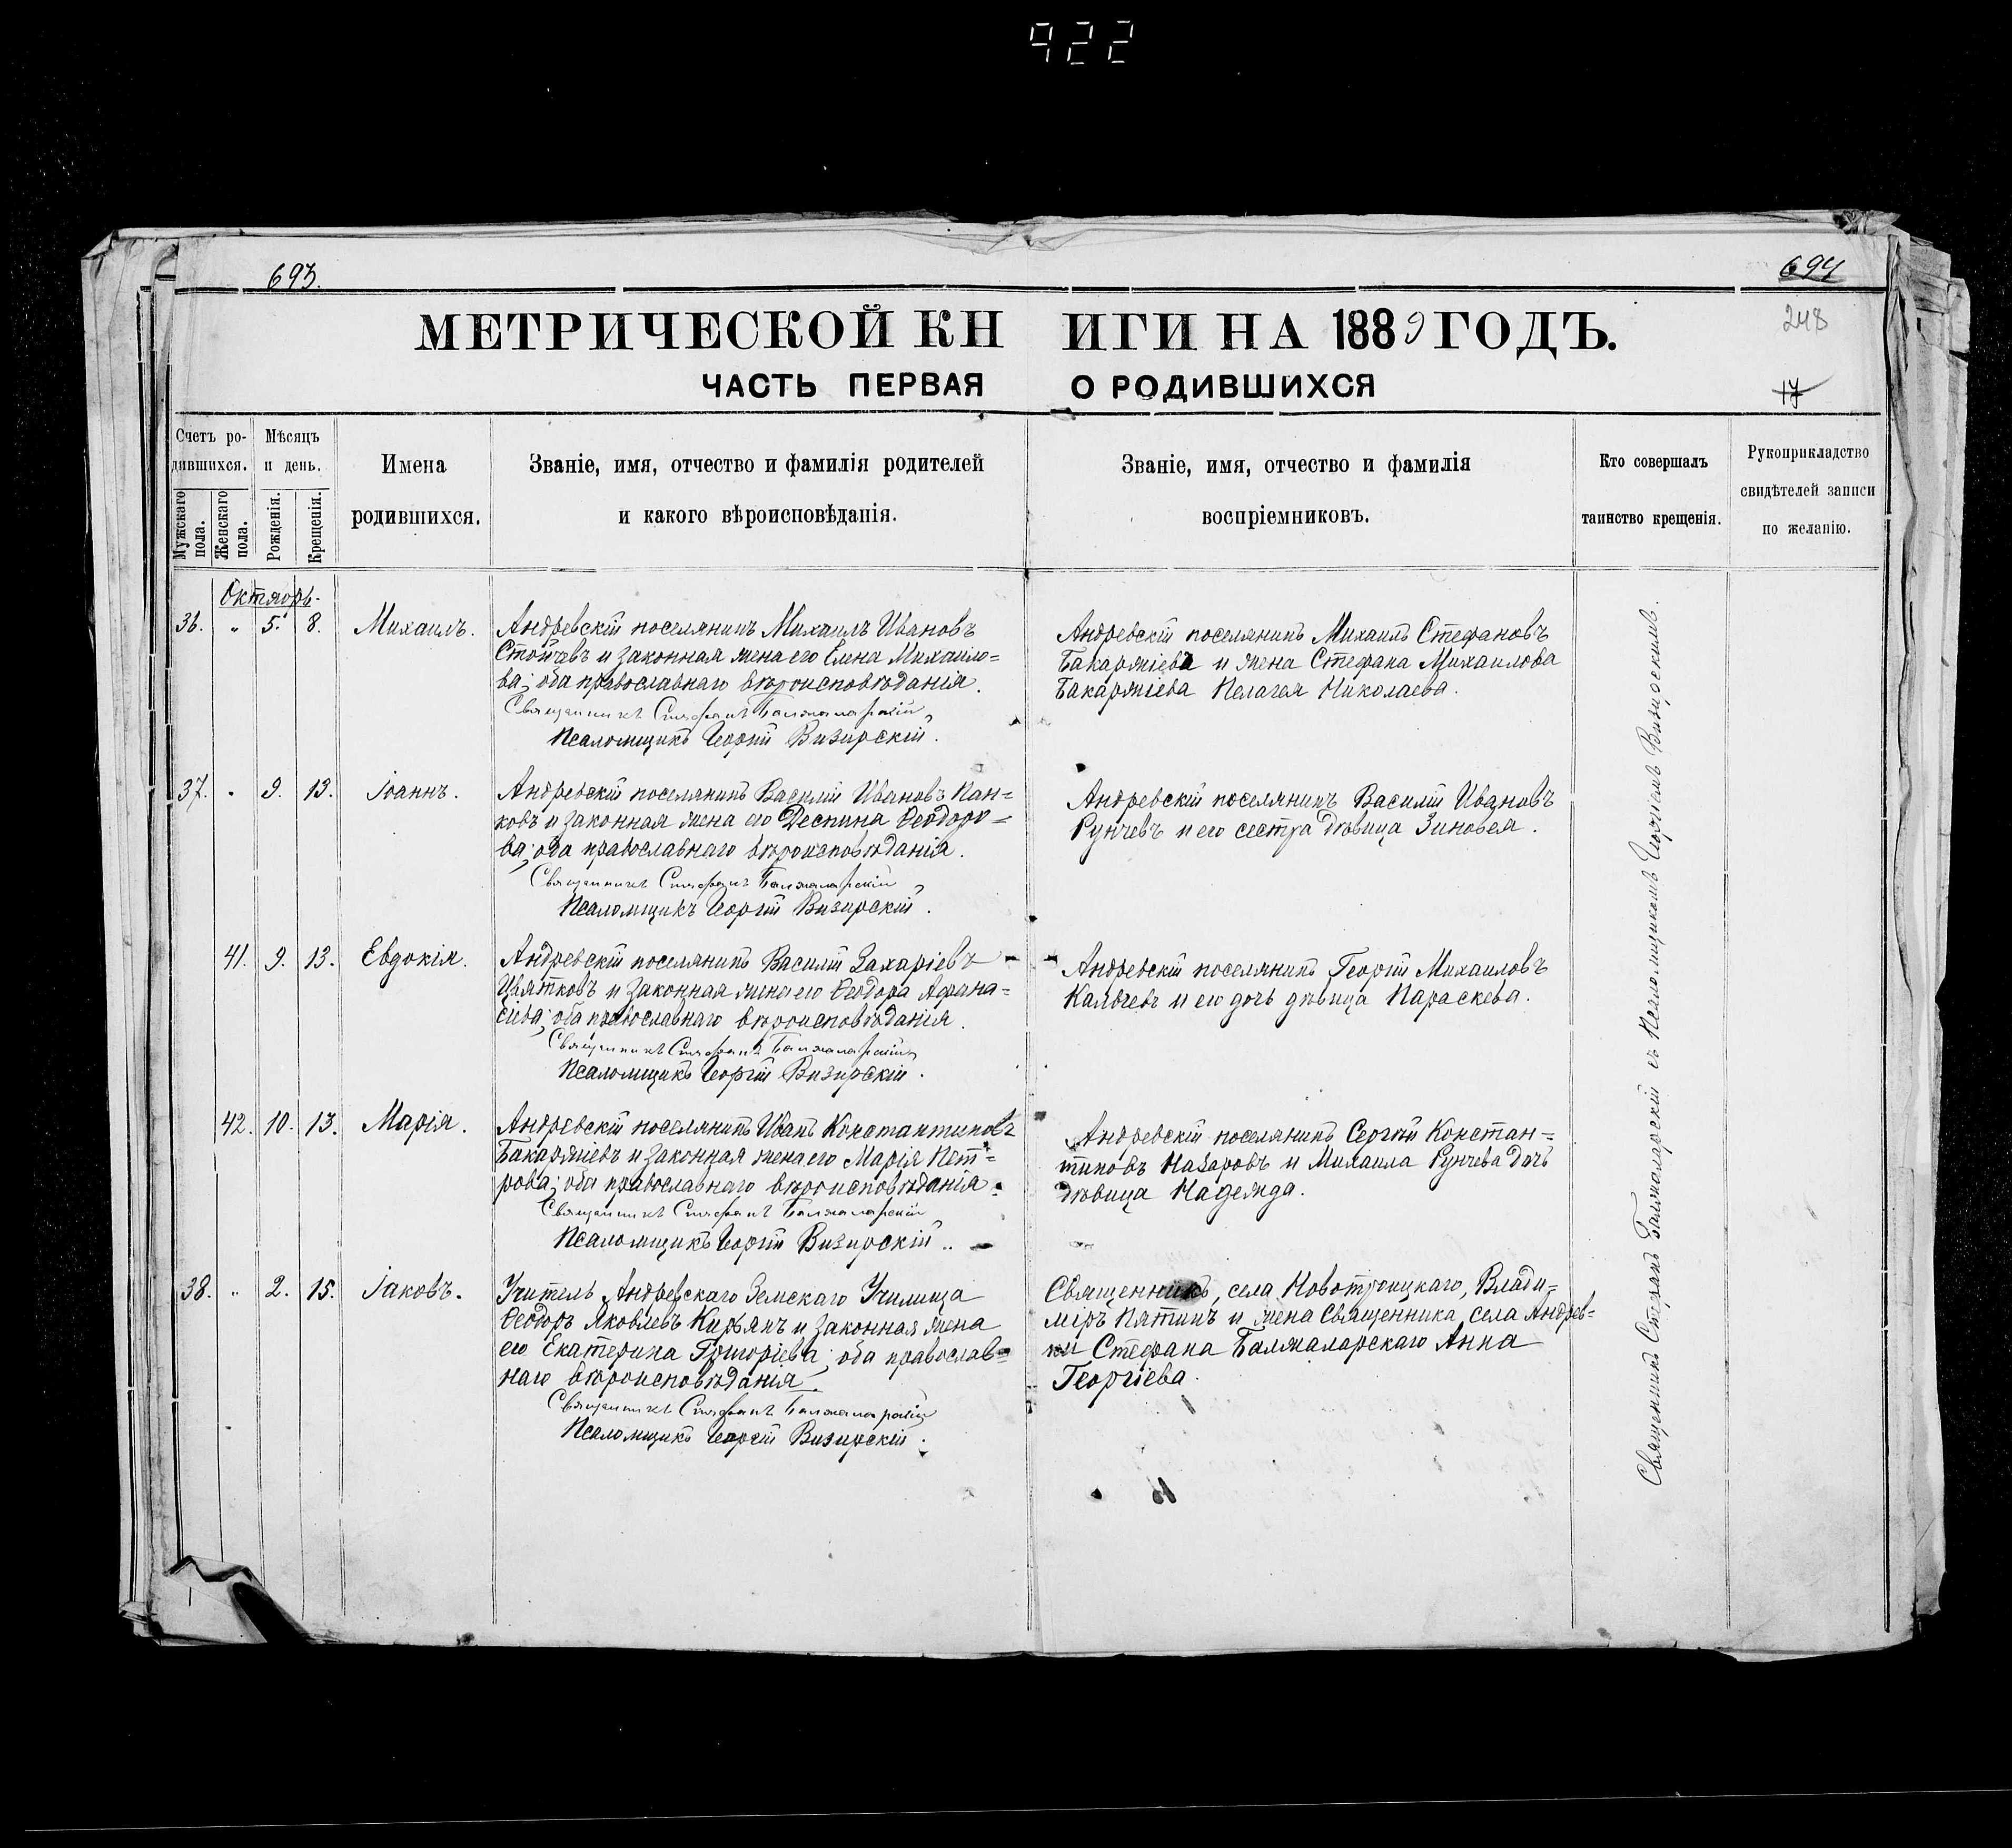 922
693.
694
МЕТРИЧЕСКОЙ КНИГИ НА 1889 ГОДЪ.
248
ЧАСТЬ ПЕРВАЯ О РОДИВШИХСЯ
17
Счетъ родившихся.
Мужскаго пола.
Женскаго пола.
Мѣсяцъ и день.
Рожденія.
Крещенія.
Имена
родившихся.
Званіе, имя, отчество и фамилія родителей
и какого вѣроисповѣданія.
Званіе, имя, отчество и фамилія
воспріемниковъ.
Кто совершалъ
таинство крещенія.
Рукоприкладство
свидѣтелей записи
по желанію.
Октяорь.
36. " 5. 8. Михаилъ.
Андревскій поселянинъ Михаилъ Ивановъ
Стойчевъ и законная жена его Елена Михаило=
ва; оба православнаго вѣроисповѣданія.
Священникъ Стефанъ Балжаларскій
Псаломщикъ Георгій Визирскій.
Андревскій поселянинъ Михаилъ Стефановъ
Бакаржіевъ и жена Стефана Михаилова
Бакаржіева Пелагея Николаева.
37. " 9. 13. Іоаннъ.
Андревскій поселянинъ Василій Ивановъ Пан=
ковъ и законная жена его Деспина Ѳеодоро=
ва; оба православнаго вѣроисповѣданія.
Священникъ Стефанъ Балжаларскій
Псаломщикъ Георгій Визирскій.
Андревскій поселянинъ Василій Ивановъ
Рунчевъ и его сестра дѣвица Зиновея.
41. 9. 13. Евдокія.
Андревскій поселянинъ Василій Захаріевъ
Цвятковъ и законная жена его Ѳеодора Афана=
сиева; оба православнаго вѣроисповѣданія.
Священникъ Стефанъ Балжаларскій
Псаломщикъ Георгій Визирскій.
Андревскій поселянинъ Георгій Михаиловъ
Калчевъ и его дочь дѣвица Параскева.
42. 10. 13. Марія.
Андревскій поселянинъ Иванъ Константиновъ
Бакаржіевъ и законная жена его Марія Пет=
рова; оба православнаго вѣроисповѣданія.
Священникъ Стефанъ Балжаларскій
Псаломщикъ Георгій Визирскій.
Андревскій поселянинъ Сергій Констан=
тиновъ Назаровъ и Михаила Рунчева дочь
дѣвица Надежда.
38. " 2. 15. Іаковъ.
Учитель Андревскаго Земскаго Училища
Ѳеодоръ Яковлевъ Кирьякъ и законная жена
его Екатерина Григоріева; оба православ=
наго вѣроисповѣданія.
Священникъ Стефанъ Балжаларскій
Псаломщикъ Георгій Визирскій.
Священникъ, села Новотроицкаго, Влади=
міръ Пятинъ и жена Священника села Андрев=
ки Стефана Балжаларскаго Анна
Георгіева.
Священникъ Стефанъ Балжаларскій съ Псаломщикомъ Георгіемъ Визирскимъ.